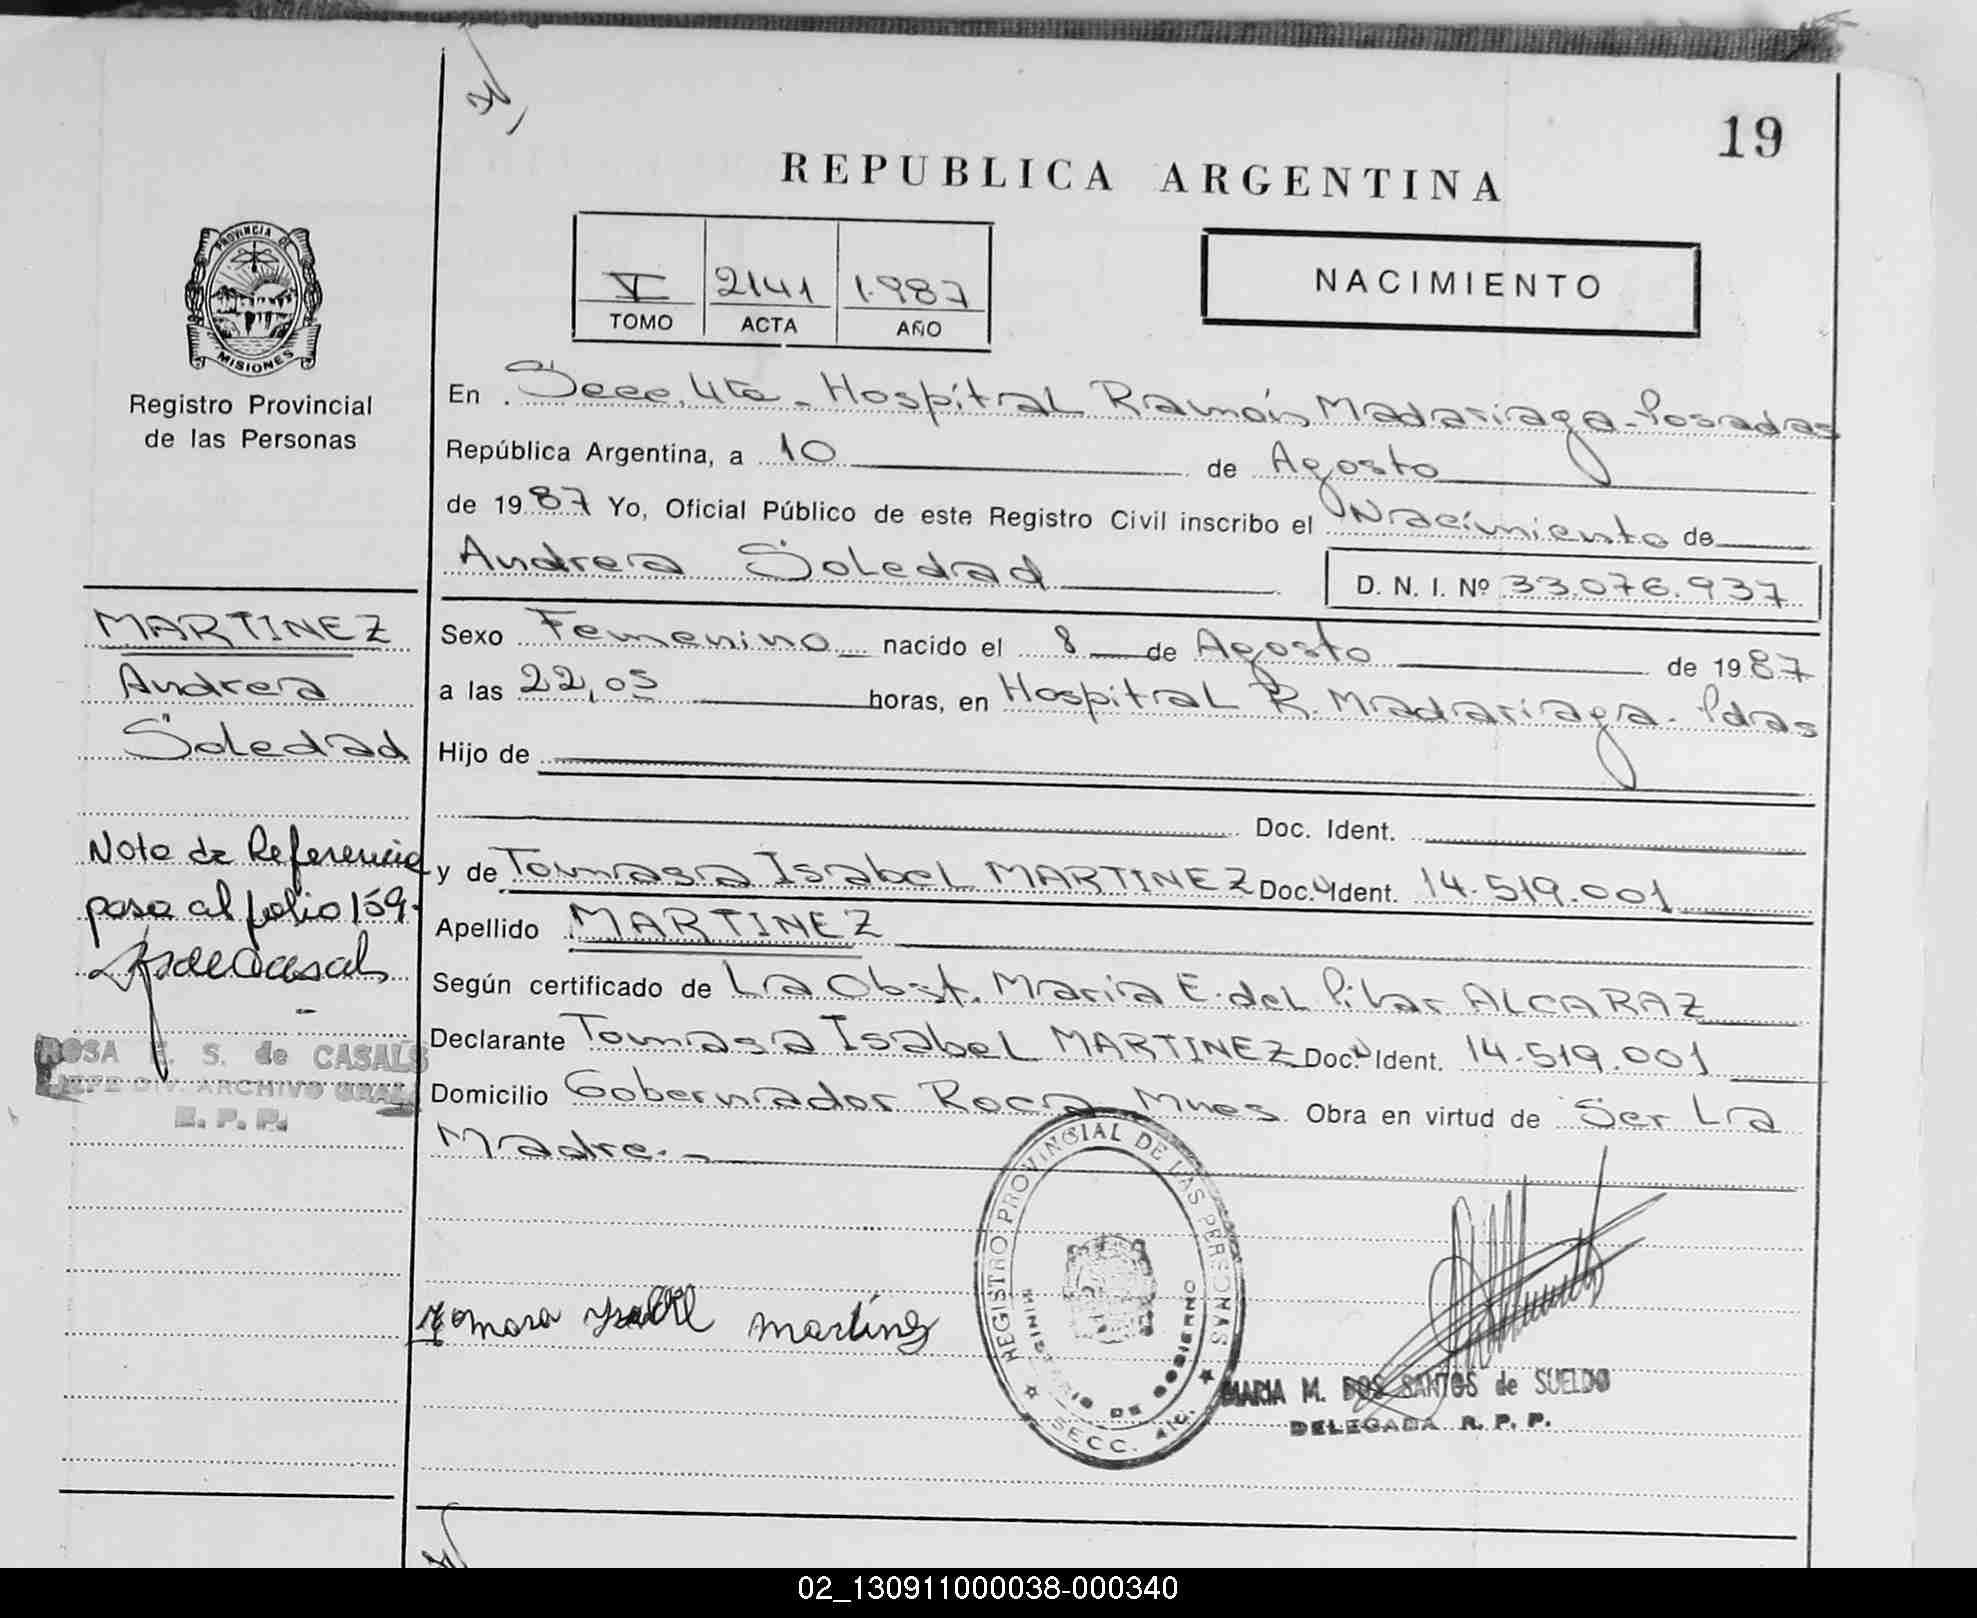 19
REPUBLICA ARGENTINA
V 2141 1.987
TOMO ACTA AÑO
NACIMIENTO
PROVINCIA DE
MISIONES
Registro Provincial
de las Personas
En Secc. 4ta - Hospital Ramón Madariaga - Posadas
República Argentina, a 10 de Agosto
de 1987 Yo, Oficial Público de este Registro Civil inscribo el Nacimiento de
Andrea Soledad D. N. I. Nº 33.076.937
Sexo Femenino nacido el 8 de Agosto de 1987
a las 22,05 horas, en Hospital R. Madariaga - Pdas
Hijo de
Doc. Ident.
y de Tomasa Isabel MARTINEZ Doc. Ident. 14.519.001
Apellido MARTINEZ
Según certificado de La Obst. María E. del Pilar ALCARAZ
Declarante Tomasa Isabel MARTINEZ Doc. Ident. 14.519.001
Domicilio Gobernador Roca Mnes Obra en virtud de Ser La
Madre. -
MARTINEZ
Andrea
Soledad
Nota de Referencia
pasa al folio 159.
ROSA S. de CASALS
JEFE DIV. ARCHIVO GRAL.
R. P. P.
REGISTRO PROVINCIAL DE LAS PERSONAS
MINISTERIO DE GOBIERNO
SECC. 4ta.
Tomasa Isabel Martinez
MARIA M. DOS SANTOS de SUELDO
DELEGADA R. P. P.
02_130911000038-000340